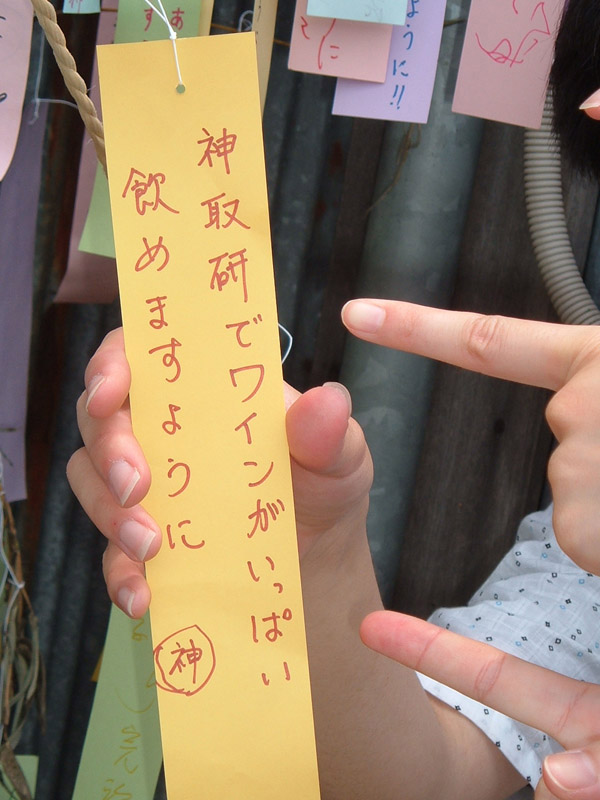 神取研でワインがいっぱい
飲めますように
神
ように!!